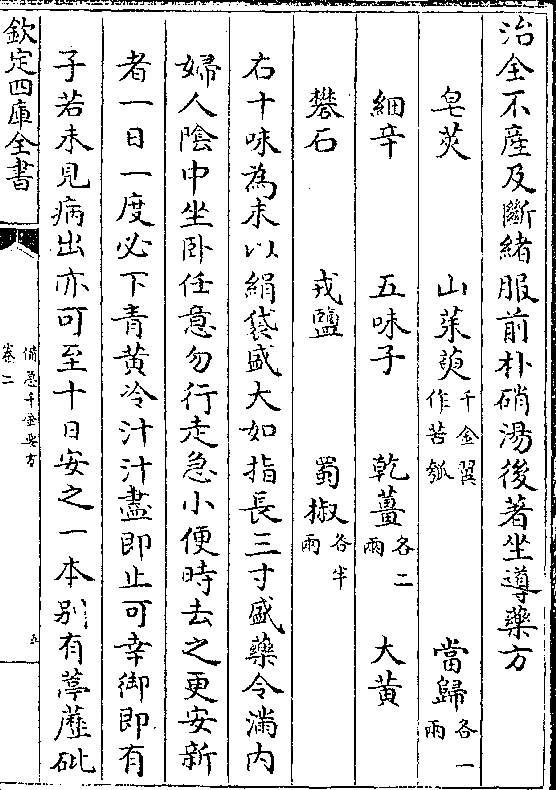 治全不產及斷緒服前朴硝湯後著坐導藥方
皂莢 山茱萸千金翼作苦瓠 當歸各一兩
細辛 五味子 乾薑各二兩 大黃
礬石 戎鹽 蜀椒各半兩
右十味為末以絹袋盛大如指長三寸盛藥令滿內
婦人陰中坐卧任意勿行走急小便時去之更安新
者一日一度必下青黃冷汁汁盡即止可幸御即有
子若未見病出亦可至十日安之一本別有葶藶砒
欽定四庫全書
備急千金要方
卷二
五